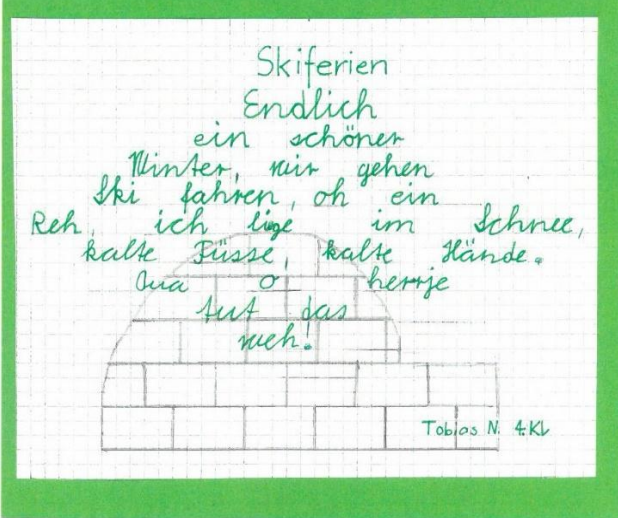 Skiferien
Endlich
ein schöner
Winter, wir gehen
Ski fahren, oh ein
Reh, ich liege im Schnee,
kalte Füsse, kalte Hände.
Aua o herrje
tut das
weh!
Tobias N. 4.Kl